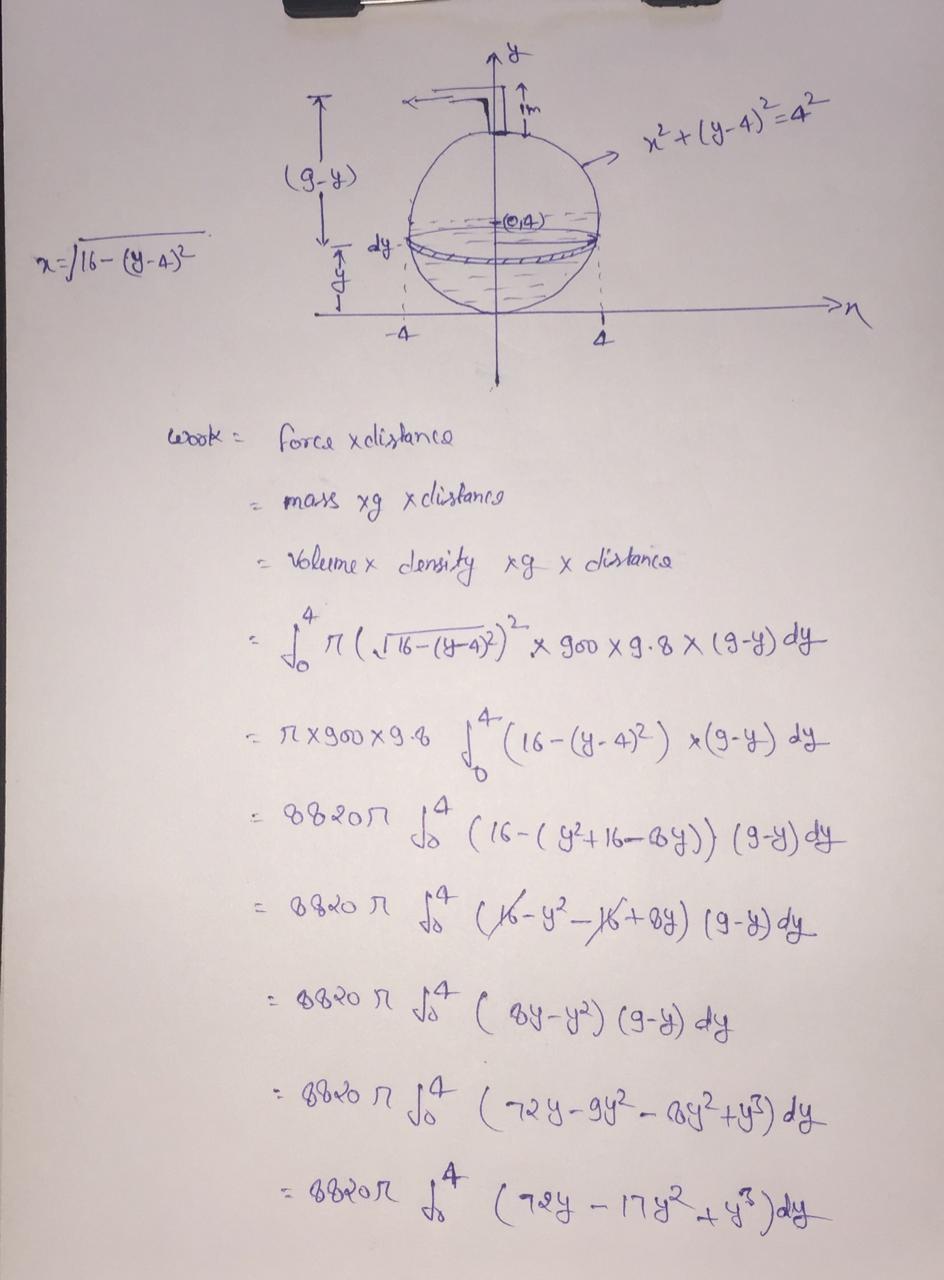 y
1m
x²+(y-4)²=4²
(9-y)
(0,4)
dy
x=√16-(y-4)²
y
x
-4
4
work = force x distance
= mass xg x distance
= Volume x density xg x distance
= ∫₀⁴ π(√16-(y-4)²)² x 900 x 9.8 x (9-y) dy
= π x 900 x 9.8 ∫₀⁴ (16-(y-4)²) x (9-y) dy
= 8820π ∫₀⁴ (16-(y²+16-8y)) (9-y) dy
= 8820π ∫₀⁴ (16-y²-16+8y) (9-y) dy
= 8820π ∫₀⁴ (8y-y²) (9-y) dy
= 8820π ∫₀⁴ (72y-9y²-8y²+y³) dy
= 8820π ∫₀⁴ (72y-17y²+y³) dy